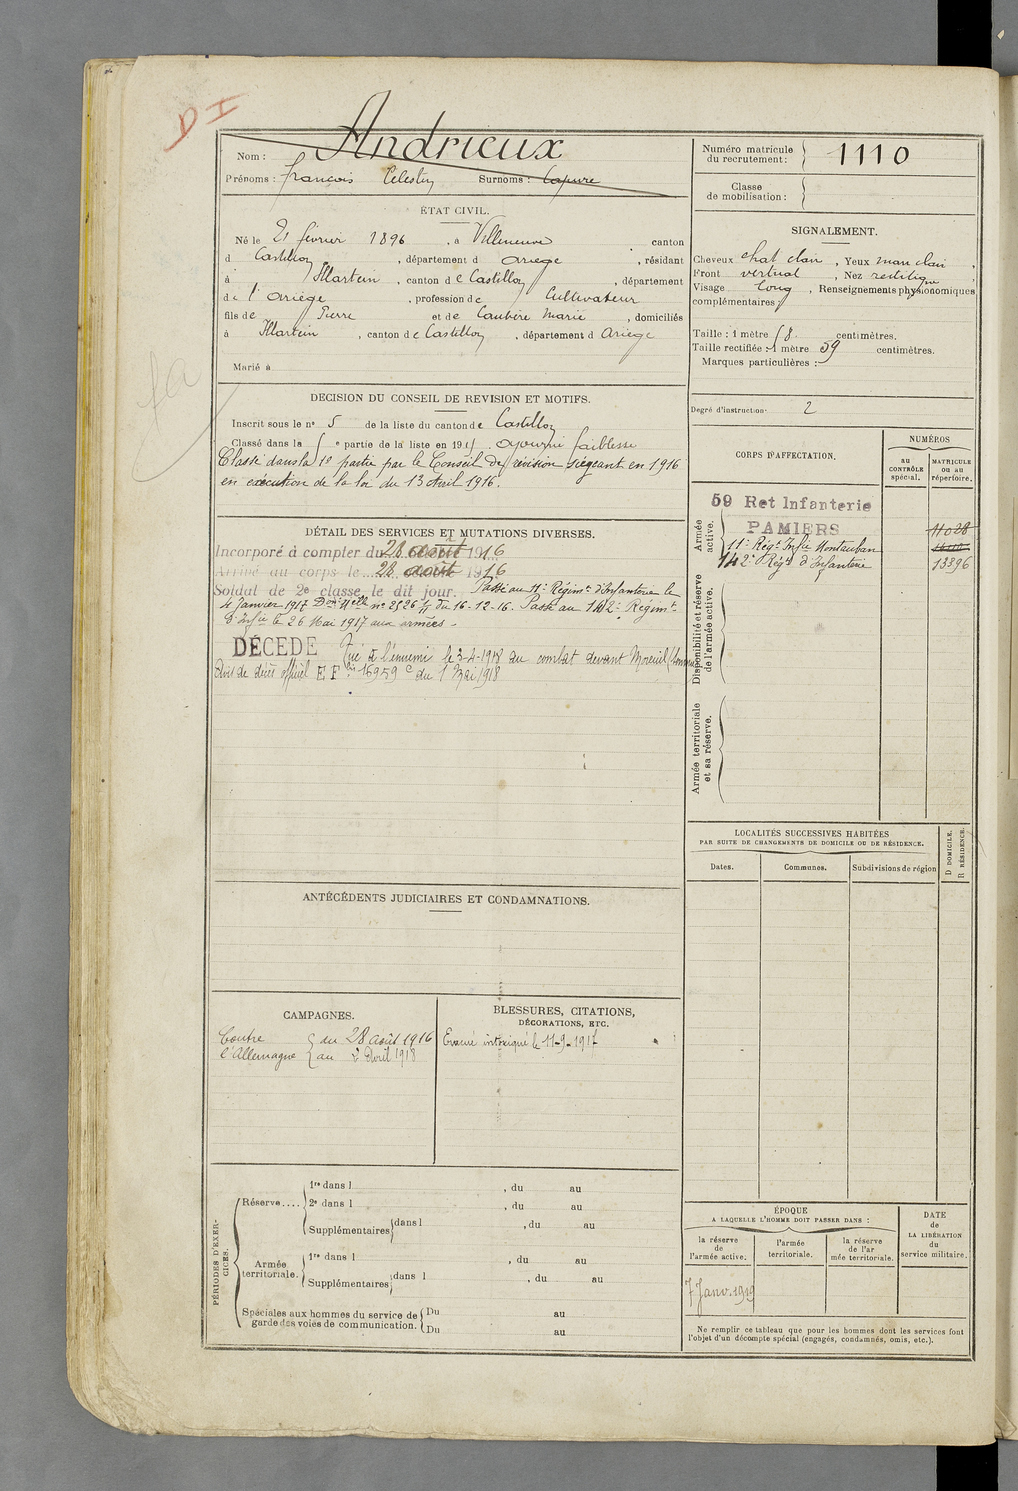 D I
Nom : Andrieux
Prénoms : François Célestin Surnoms : Capure
ÉTAT CIVIL.
Né le 21 février 1896, à Villeneuve canton
d Castillon, département d ariege, résidant
à Illartein, canton de Castillon, département
de l'ariège, profession de Cultivateur
fils de Pierre et de Caubère Marie, domiciliés
à Illartein, canton de Castillon, département d Ariege
Marié à
DÉCISION DU CONSEIL DE REVISION ET MOTIFS.
Inscrit sous le n° 5 de la liste du canton de Castillon
Classé dans la 5e partie de la liste en 1915 ajourné faiblesse
Classé dans la 1e partie par le Conseil de révision siégeant en 1916
en exécution de la loi du 13 Avril 1916.
DÉTAIL DES SERVICES ET MUTATIONS DIVERSES.
Incorporé à compter du 28 août 1916
Arrivé au corps le 28 août 1916
Soldat de 2e classe le dit jour. Passé au 11e Régimt d'Infanterie le
4 Janvier 1917 Don Mlle n° 2526 du 16-12-16. Passé au 142e Régimt
d'Infie le 26 Mai 1917 aux armées.
DÉCÉDÉ Tué à l'ennemi le 3-4-1918 au combat devant Moreuil (Somme)
Avis de décès officiel E F 16959 c du 1 Mai 1918
ANTÉCÉDENTS JUDICIAIRES ET CONDAMNATIONS.
CAMPAGNES.
Contre { du 28 août 1916
l'Allemagne { au Avril 1918
BLESSURES, CITATIONS,
DÉCORATIONS, ETC.
Evacué intoxiqué le 11-9-1917
PÉRIODES D'EXERCICES.
Réserve....
1re dans l , du au
2e dans l , du au
Supplémentaires dans l , du au
Armée
territoriale.
1re dans l , du au
Supplémentaires dans l , du au
Spéciales aux hommes du service de
garde des voies de communication.
Du au
Du au
Numéro matricule
du recrutement : 1110
Classe
de mobilisation :
SIGNALEMENT.
Cheveux chat clair, Yeux mar clair,
Front vertical, Nez rectilign
Visage long, Renseignements physionomiques
complémentaires :
Taille : 1 mètre 58 centimètres.
Taille rectifiée : 1 mètre 59 centimètres.
Marques particulières :
Degré d'instruction : 2
CORPS D'AFFECTATION.
NUMÉROS
au
CONTRÔLE
spécial.
MATRICULE
ou au
répertoire.
Armée
active.
59 Ret Infanterie
PAMIERS 11028
11e Régt Infie Montauban
142e Régt d'Infanterie 13396
Disponibilité et réserve
de l'armée active.
Armée territoriale
et sa réserve.
LOCALITÉS SUCCESSIVES HABITÉES
PAR SUITE DE CHANGEMENTS DE DOMICILE OU DE RÉSIDENCE.
Dates.
Communes.
Subdivisions de région
D DOMICILE.
R RÉSIDENCE.
ÉPOQUE
A LAQUELLE L'HOMME DOIT PASSER DANS :
la réserve
de
l'armée active.
l'armée
territoriale.
la réserve
de l'ar
mée territoriale.
DATE
de
LA LIBÉRATION
du
service militaire.
7 Janv. 1919
Ne remplir ce tableau que pour les hommes dont les services font
l'objet d'un décompte spécial (engagés, condamnés, omis, etc.).